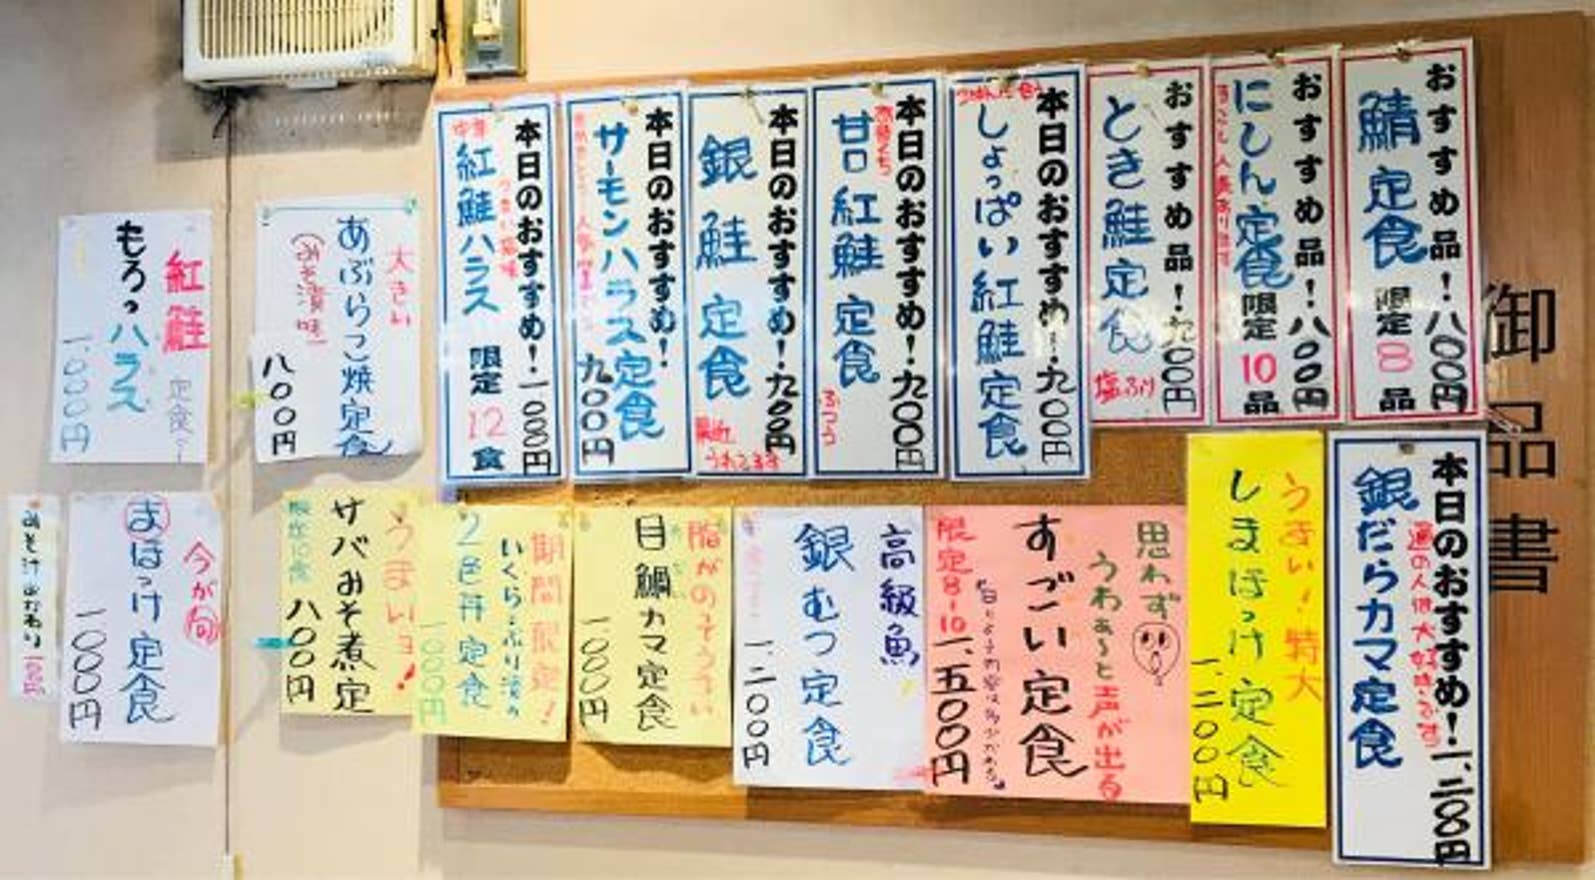 御品書
おすすめ品!八〇〇円
鯖定食
限定8品
おすすめ品!八〇〇円
にしん定食
限定10品
おすすめ品!九〇〇円
とき鮭定食
塩ふり
本日のおすすめ!九〇〇円
しょっぱい紅鮭定食
本日のおすすめ!九〇〇円
甘口紅鮭定食
ふつう
本日のおすすめ!九〇〇円
銀鮭定食
最近
うれてます
本日のおすすめ!
サーモンハラス定食
九〇〇円
本日のおすすめ!一〇〇〇円
うまい塩味
紅鮭ハラス
限定12食
大きい
あぶらこ焼定食
(みそ漬味)
八〇〇円
紅鮭
定食
もろっハラス
一、〇〇〇円
本日のおすすめ!一、二〇〇円
通の人は大好きです
銀だらカマ定食
うまい!特大
しまほっけ定食
一、二〇〇円
思わず
うわぁ〜と声が出る
すごい定食
限定8〜10
一、五〇〇円
高級魚
銀むつ定食
一、二〇〇円
脂がのってうまい
目鯛カマ定食
一〇〇〇円
期間限定!
いくら・ぶり漬の
2色丼定食
一〇〇〇円
うまいョ!
サバみそ煮定
限定10食
八〇〇円
今が旬
まほっけ定食
一〇〇〇円
みそ汁おかわり